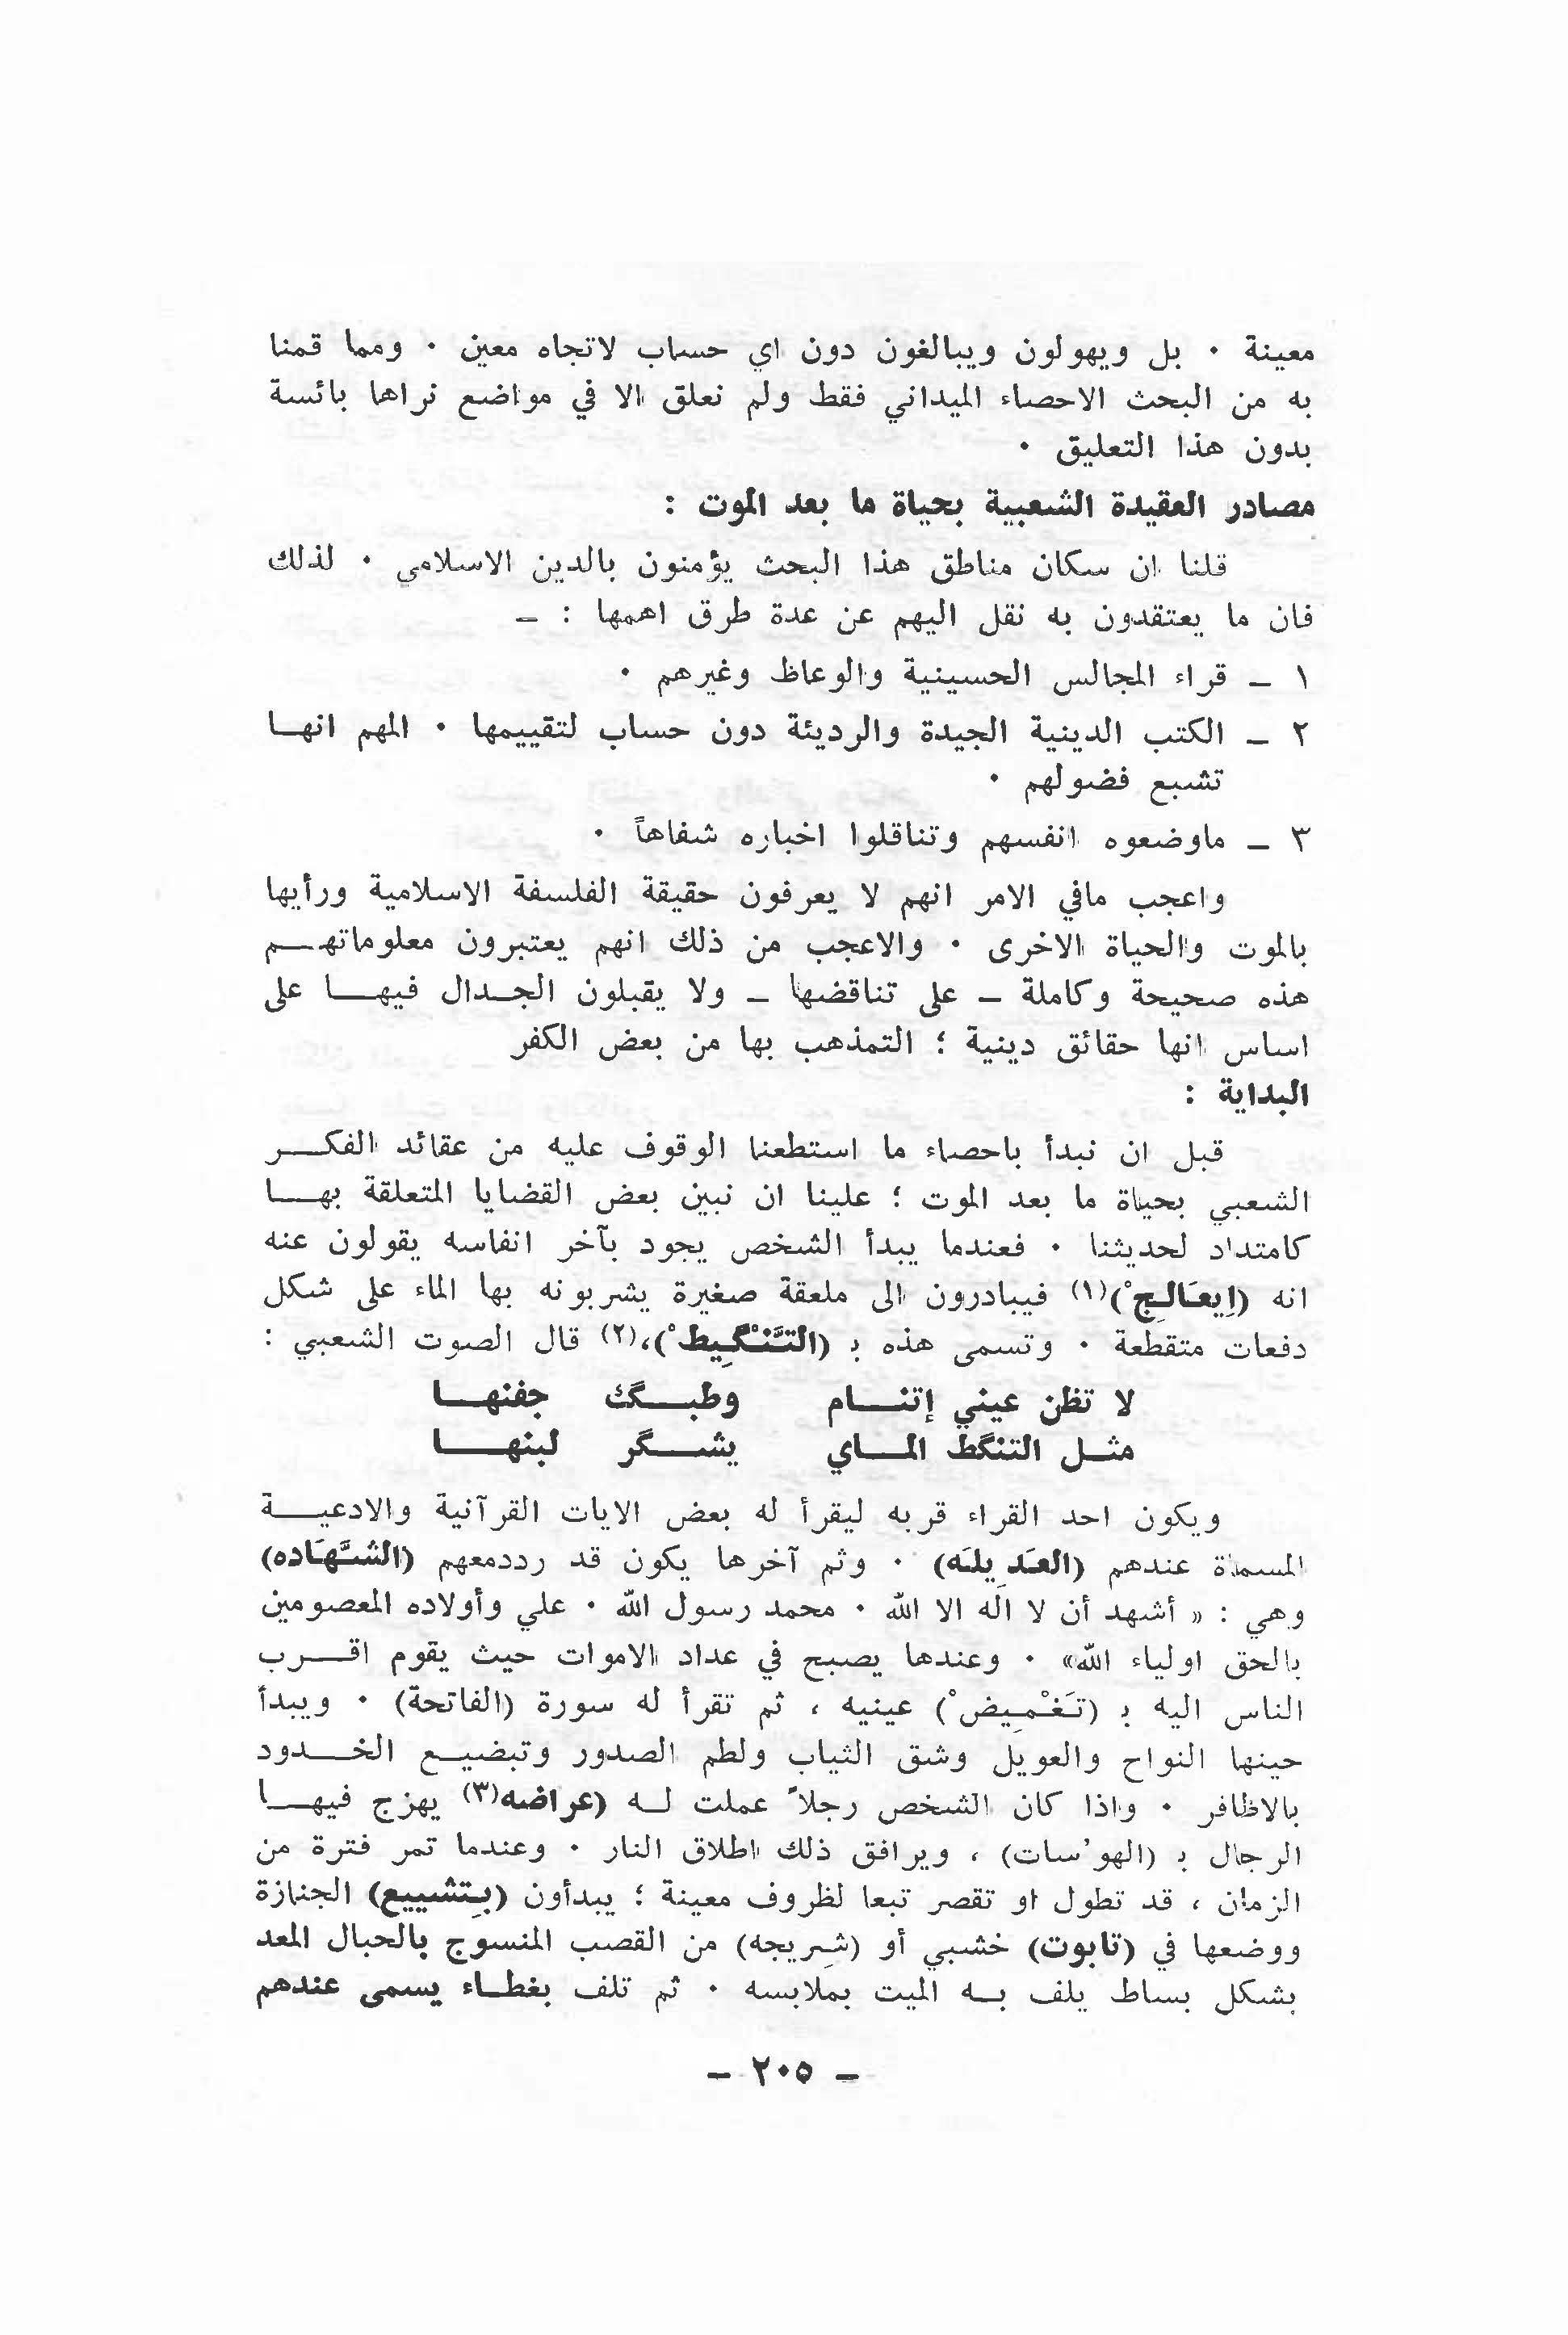 معينة ٠ بل ويهولون ويبالغون دون اي حساب لاتجاه معين ٠ ومما قمنا
به من البحث الاحصاء الميداني فقط ولم نعلق الا في مواضع نراها بائسة
بدون هذا التعليق ٠
مصادر العقيدة الشعبية بحياة ما بعد الموت :
قلنا ان سكان مناطق هذا البحث يؤمنون بالدين الاسلامي ٠ لذلك
فان ما يعتقدون به نقل اليهم عن عدة طرق اهمها : ـ
١ ـ قراء المجالس الحسينية والوعاظ وغيرهم ٠
٢ ـ الكتب الدينية الجيدة والرديئة دون حساب لتقييمها ٠ المهم انهــا
تشبع فضولهم ٠
٣ ـ ماوضعوه انفسهم وتناقلوا اخباره شفاهاً ٠
واعجب مافي الامر انهم لا يعرفون حقيقة الفلسفة الاسلامية ورأيها
بالموت والحياة الاخرى ٠ والاعجب من ذلك انهم يعتبرون معلوماتهــم
هذه صحيحة وكاملة ـ على تناقضها ـ ولا يقبلون الجــدال فيهــا على
اساس انها حقائق دينية ؛ التمذهب بها من بعض الكفر
البداية :
قبل ان نبدأ باحصاء ما استطعنا الوقوف عليه من عقائد الفكــر
الشعبي بحياة ما بعد الموت ؛ علينا ان نبين بعض القضايا المتعلقة بهــا
كامتداد لحديثنا ٠ فعندما يبدأ الشخص يجود بآخر انفاسه يقولون عنه
انه (اِيعَالِجْ)(١) فيبادرون الى ملعقة صغيرة يشربونه بها الماء على شكل
دفعات متقطعة ٠ وتسمى هذه بـ (التَّنْگِيطْ)،(٢) قال الصوت الشعبي :
لا تظن عيني إتنــام وطبــگت جفنهــا
مثــل التنگط المــاي يشــگر لبنهــا
ويكون احد القراء قربه ليقرأ له بعض الايات القرآنية والادعيــة
المسماة عندهم (العَدِيلَه) ٠ وثم آخرها يكون قد رددمعهم (الشَّهَاده)
وهي : « أشهد أن لا اله الا الله ٠ محمد رسول الله ٠ علي وأولاده المعصومين
بالحق اولياء الله» ٠ وعندها يصبح في عداد الاموات حيث يقوم اقــرب
الناس اليه بـ (تَغْمِيضْ) عينيه ، ثم تقرأ له سورة (الفاتحة) ٠ ويبدأ
حينها النواح والعويل وشق الثياب ولطم الصدور وتبضيــع الخــدود
بالاظافر ٠ واذا كان الشخص رجلاً عملت لــه (عراضه(٣) يهزج فيهــا
الرجال بـ (الهوْسات) ، ويرافق ذلك اطلاق النار ٠ وعندما تمر فترة من
الزمان ، قد تطول او تقصر تبعا لظروف معينة ؛ يبدأون (بِتشييع) الجنازة
ووضعها في (تابوت) خشبي أو (شِريجه) من القصب المنسوج بالحبال المعد
بشكل بساط يلف بــه الميت بملابسه ٠ ثم تلف بغطــاء يسمى عندهم
ـ ٢٠٥ ـ